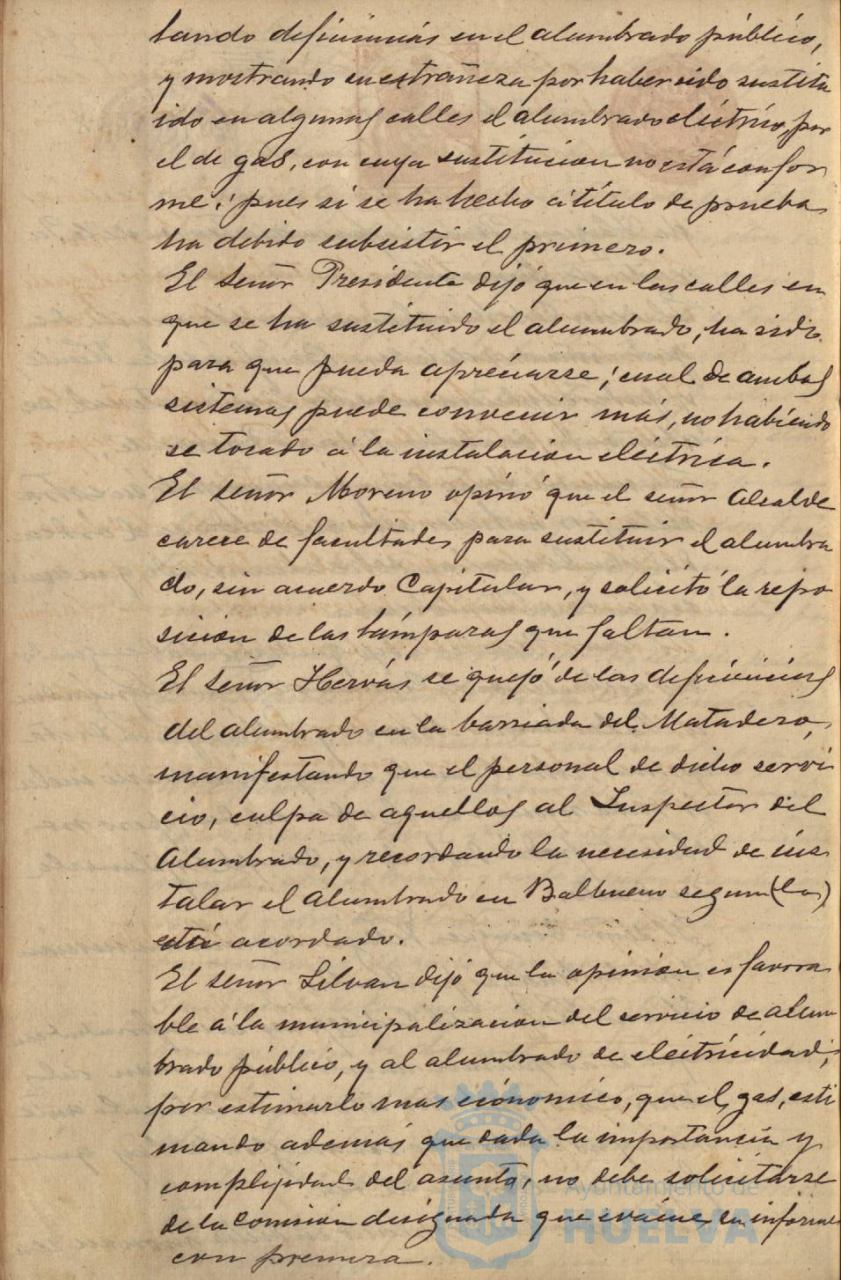 tando deficiencias en el alumbrado público,
y mostrando su extrañeza por haber sido sustitu
ido en algunas calles el alumbrado eléctrico, por
el de gas, con cuya sustitución no está confor
me; pues si se ha hecho á título de prueba
ha debido subsistir el primero.
El Señor Presidente dijó que en las calles en
que se ha sustituido el alumbrado, ha sido
para que pueda apreciarse; cual de ambos
sistemas puede convenir más, no habiendo
se tocado á la instalación eléctrica.
El señor Moreno opinó que el señor Alcalde
carece de facultades para sustituir el alumbra
do, sin acuerdo Capitular, y solicitó la repo
sición de las lámparas que faltan.
El señor Hervás se quejó de las deficiencias
del alumbrado en la barriada del Matadero,
manifestando que el personal de dicho servi
cio, culpa de aquellos al Inspector del
Alumbrado, y recordando la necesidad de ins
talar el alumbrado en Balbueno segun (la)
está acordado.
El señor Silvan dijó que la opinión es favora
ble á la municipalización del servicio de alum
brado público, y al alumbrado de electricidad;
por estimarlo mas económico, que el gas, esti
mando además que dada la importancia y
complejidad del asunto, no debe solicitarse
de la Comisión designada que evacue su informe
con premura.
Ayuntamiento de
HUELVA